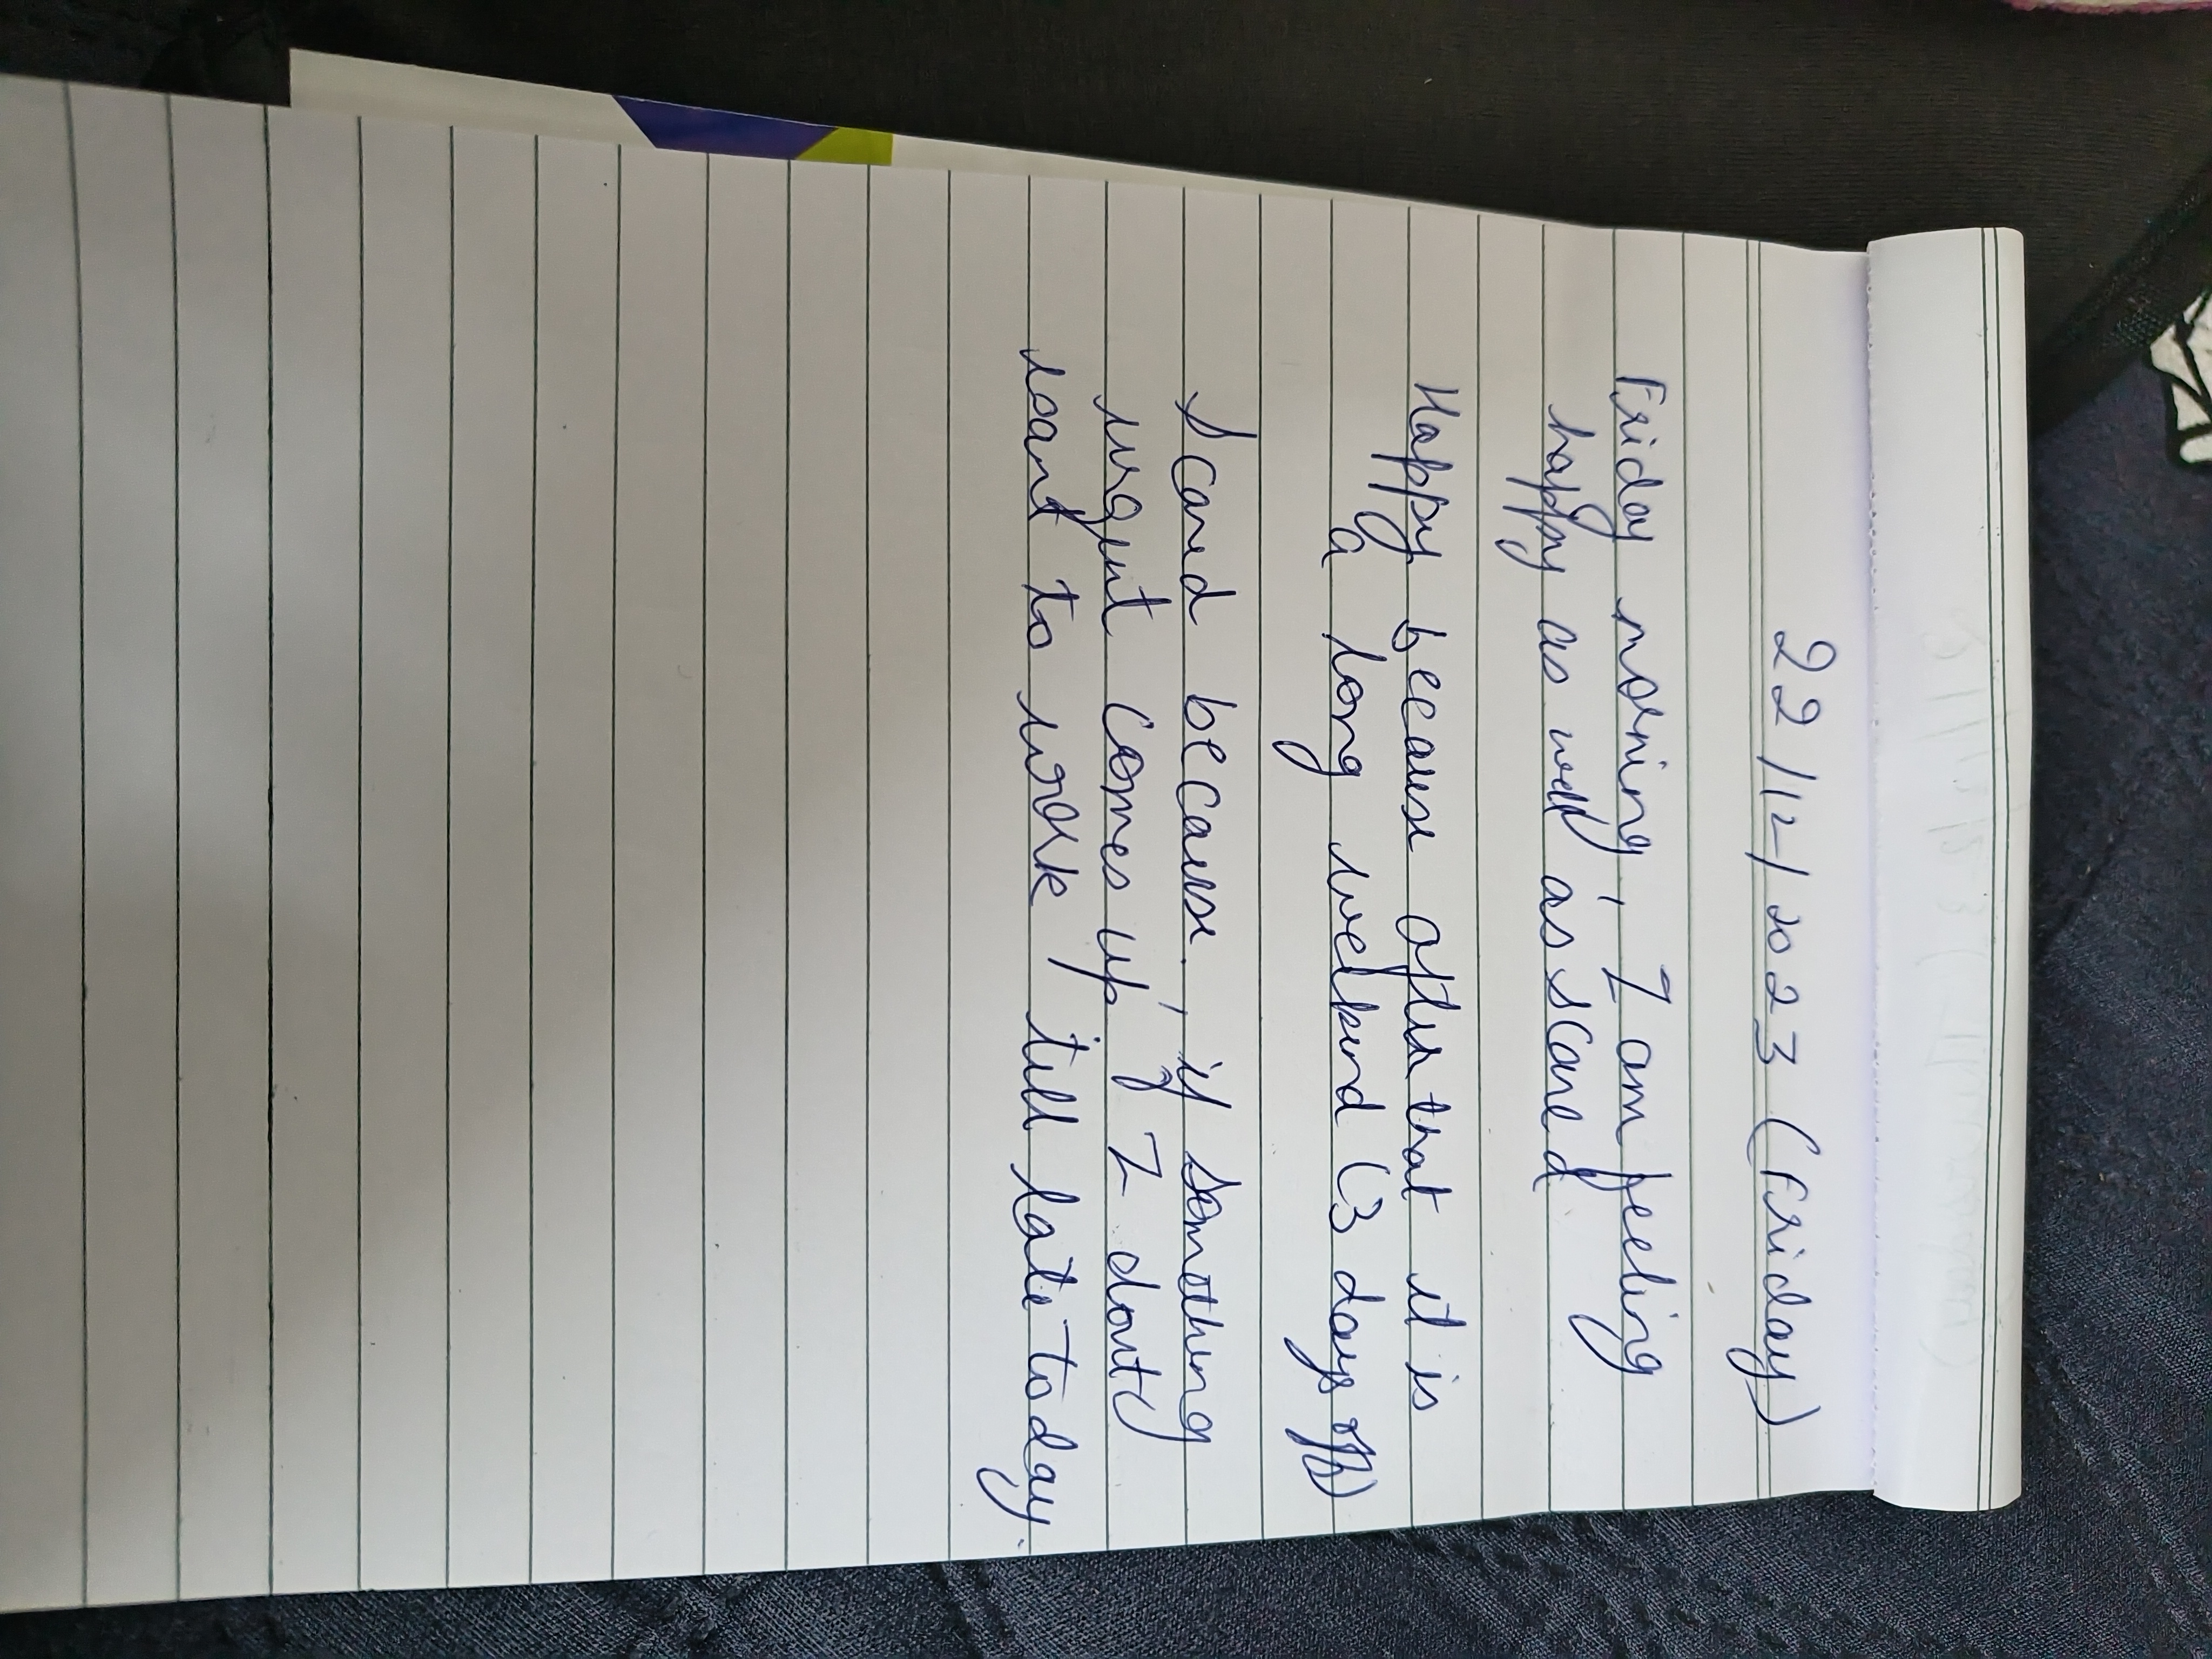 22/12/2023 (Friday)
Friday morning, I am feeling
happy as well as scared
Happy because after that it is
a long weekend (3 days off)
Scared because, if something
urgent comes up, I dont
want to work till late today.